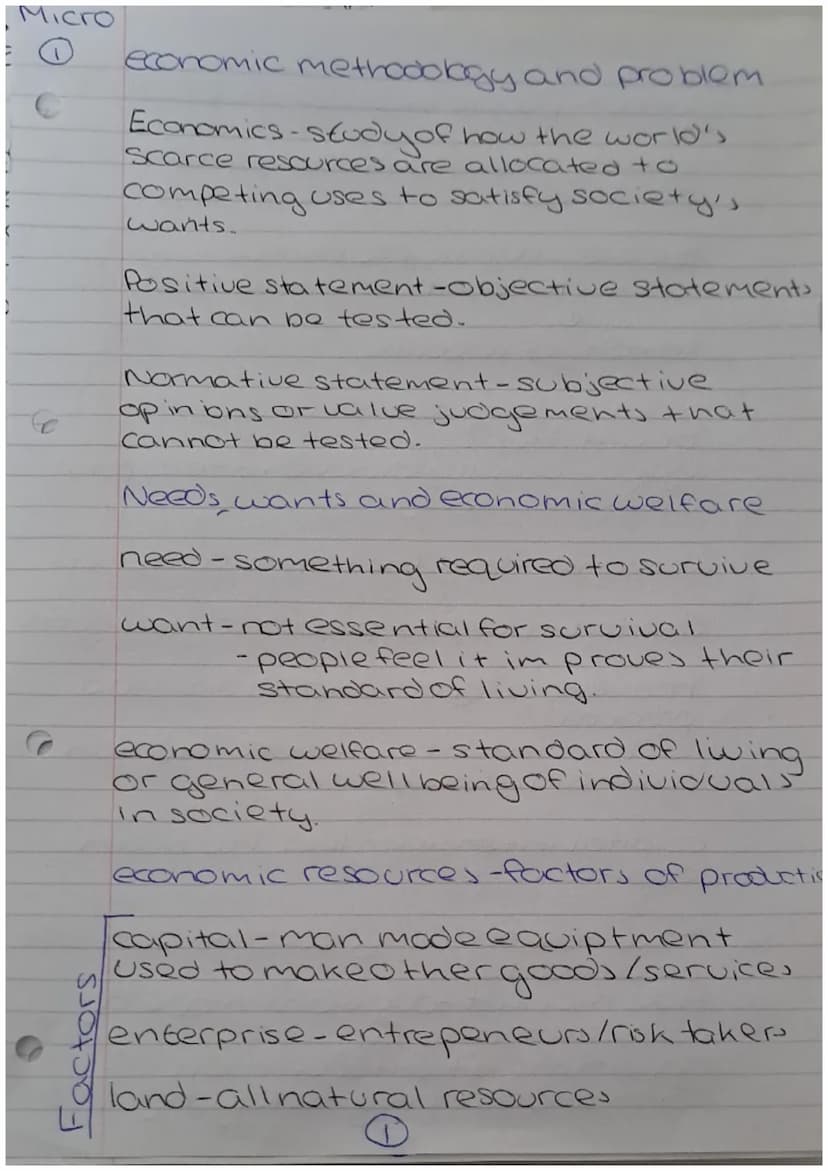 Micro
① economic methodology and problem
Economics - study of how the world's
scarce resources are allocated to
competing uses to satisfy society's
wants.
Positive statement - objective statements
that can be tested.
Normative statement - subjective
opinions or value judgements that
cannot be tested.
Needs, wants and economic welfare
need - something required to survive
want - not essential for survival
- people feel it improves their
standard of living.
economic welfare - standard of living
or general wellbeing of individuals
in society.
economic resources - factors of productio
Factors
capital - man made equiptment
used to make other goods/services
enterprise - entrepeneurs/risk takers
land - all natural resources
①